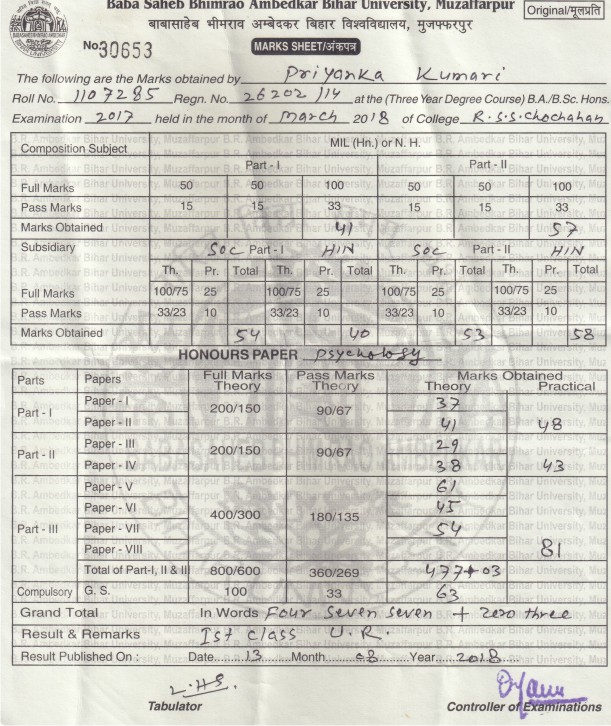 Baba Saheb Bhimrao Ambedkar Bihar University, Muzaffarpur
Original/मूलप्रति
बाबासाहेब भीमराव अम्बेदकर बिहार विश्वविद्यालय, मुजफ्फरपुर
No 30653
MARKS SHEET/अंकपत्र
The following are the Marks obtained by Priyanka Kumari
Roll No. 1107285 Regn. No. 26202/14 at the (Three Year Degree Course) B.A./B.Sc. Hons.
Examination 2017 held in the month of March 2018 of College R.S.S. Chochahan
Composition Subject MIL (Hn.) or N. H.
Part - I Part - II
Full Marks 50 50 100 50 50 100
Pass Marks 15 15 33 15 15 33
Marks Obtained 41 57
Subsidiary SOC Part - I HIN SOC Part - II HIN
Th. Pr. Total Th. Pr. Total Th. Pr. Total Th. Pr. Total
Full Marks 100/75 25 100/75 25 100/75 25 100/75 25
Pass Marks 33/23 10 33/23 10 33/23 10 33/23 10
Marks Obtained 54 40 53 58
HONOURS PAPER Psychology
Parts Papers Full Marks Theory Pass Marks Theory Marks Obtained Theory Practical
Part - I Paper - I 200/150 90/67 37
Paper - II 41 48
Part - II Paper - III 200/150 90/67 29
Paper - IV 38 43
Part - III Paper - V 400/300 180/135 61
Paper - VI 45
Paper - VII 54
Paper - VIII 81
Total of Part-I, II & III 800/600 360/269 477+03
Compulsory G. S. 100 33 63
Grand Total In Words Four Seven Seven + Zero three
Result & Remarks Ist class U.R.
Result Published On : Date 13 Month 08 Year 2018
Tabulator Controller of Examinations